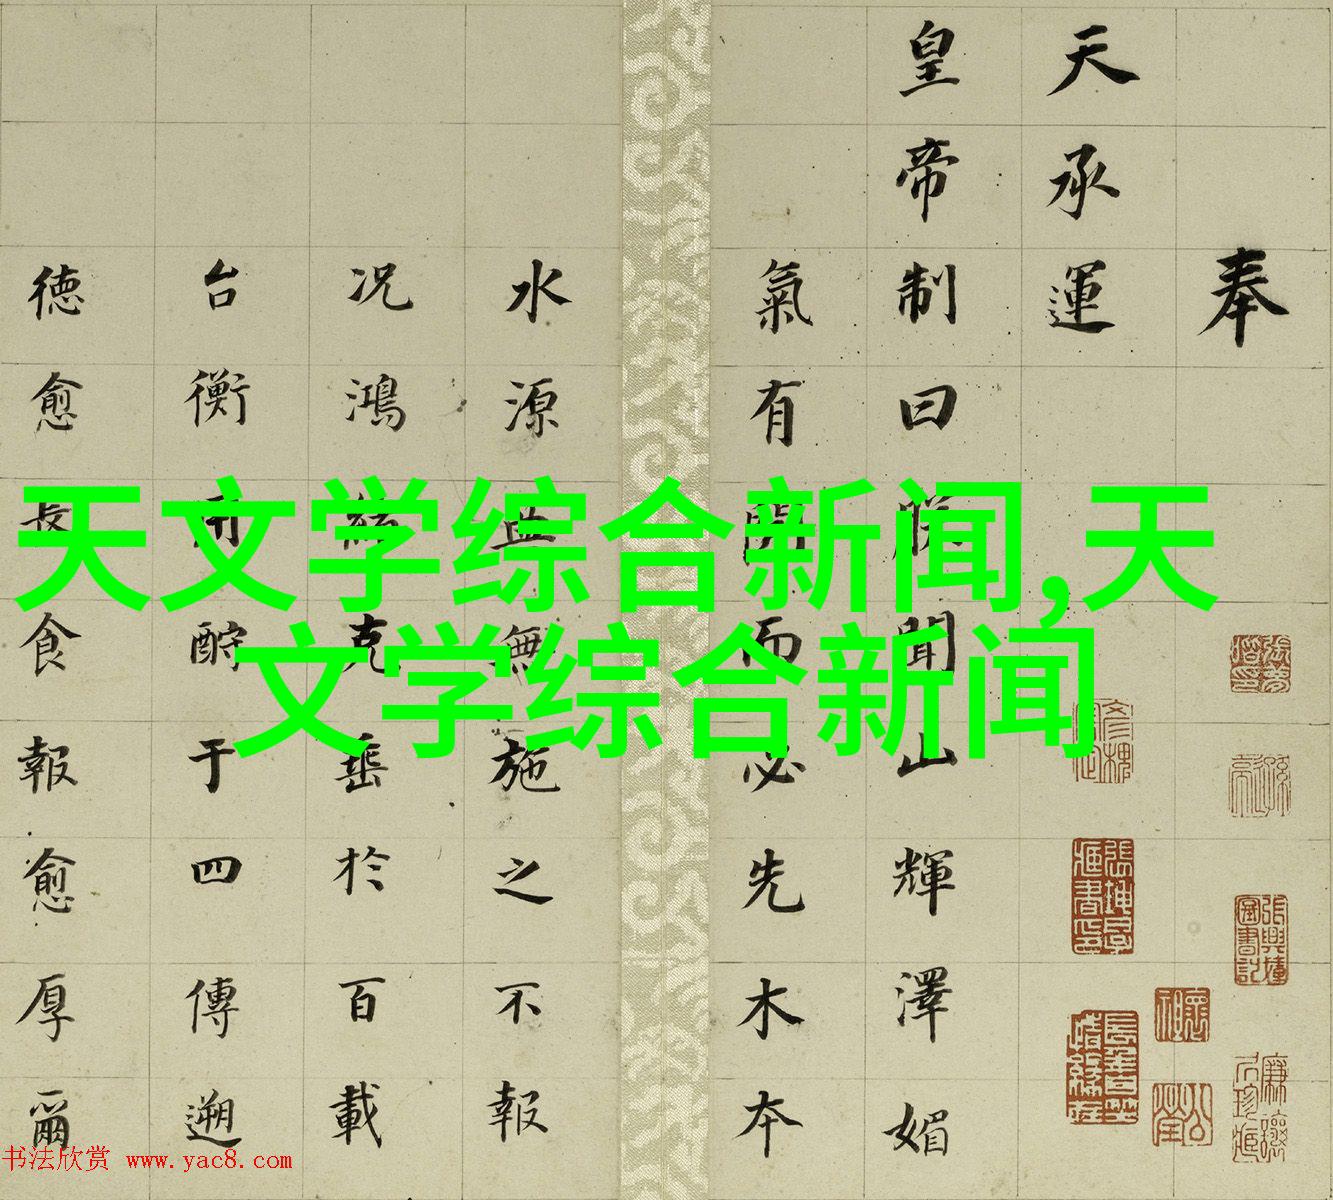 奉
天承運
皇帝制曰朕聞山輝澤媚
氣有開而必先木本
水源無施之不報
况鴻克垂於百載
台衡用酹于四傳遡
德愈長食報愈厚爾
天文学综合新闻,天
文学综合新闻
书法欣赏 www.yac8.com